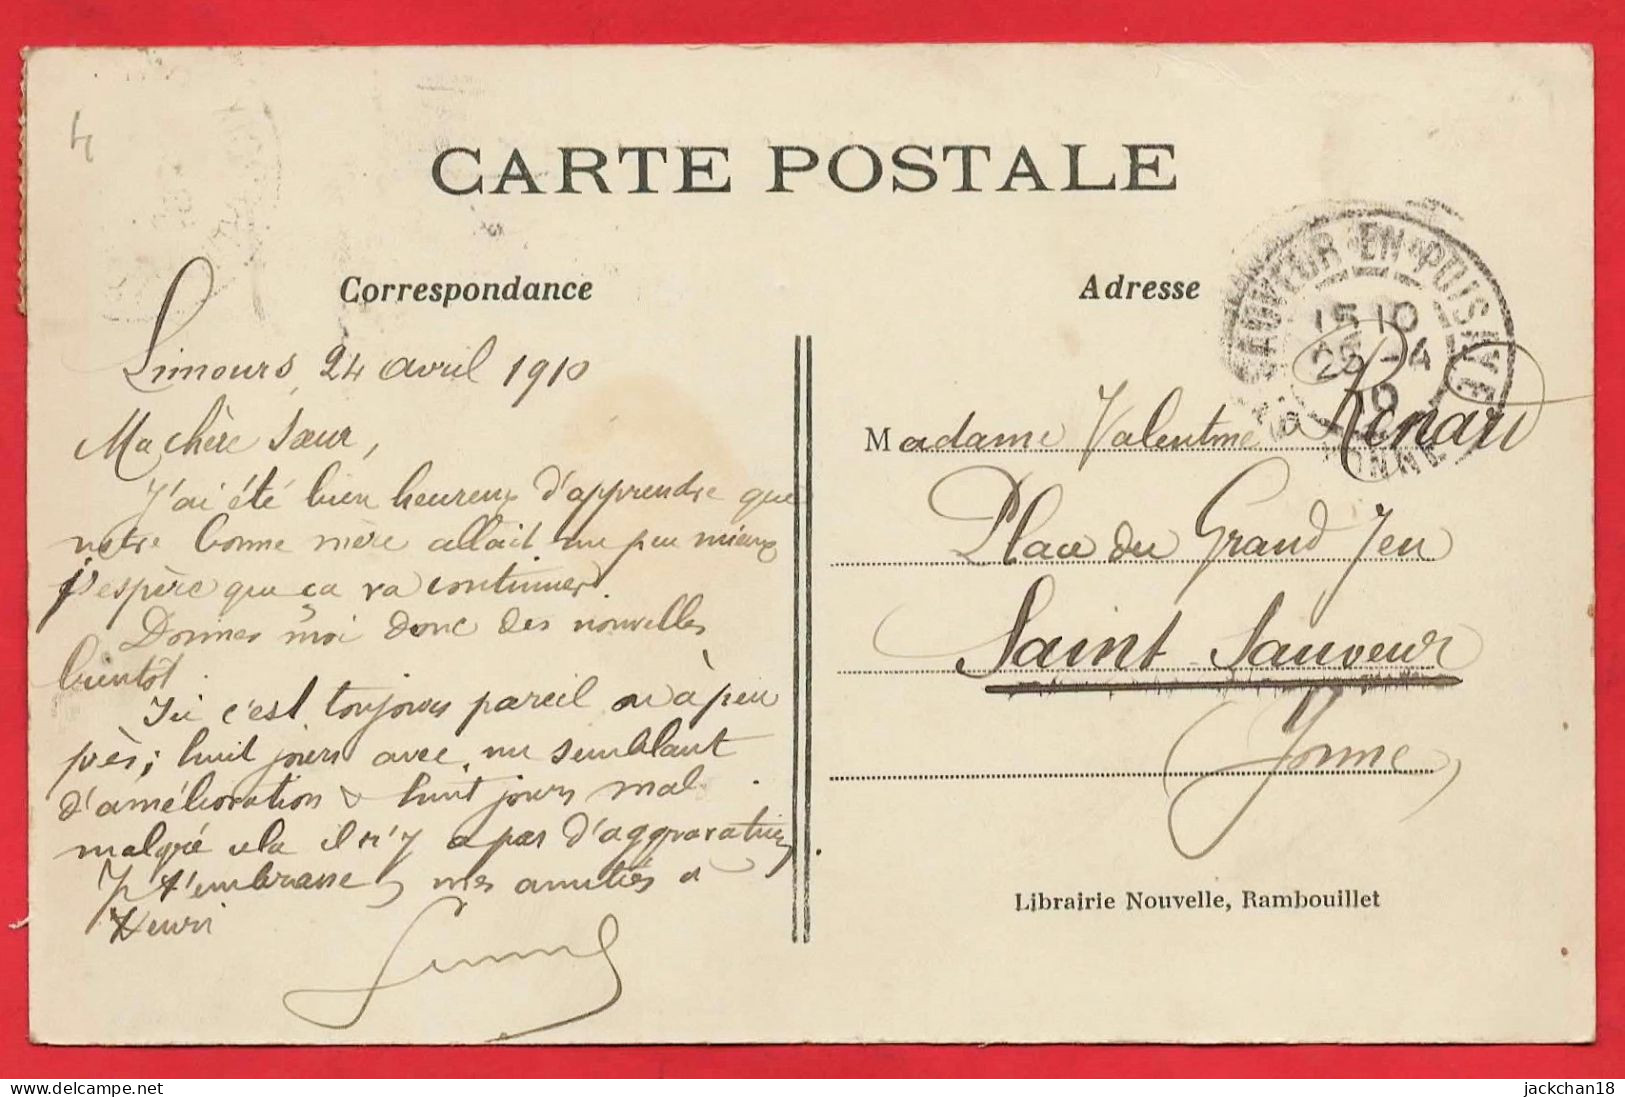 CARTE POSTALE
Correspondance
Limours, 24 avril 1910
Ma chère Sœur,
J'ai été bien heureux d'apprendre que
notre bonne mère allait un peu mieux
j'espère que ça va continuer.
Donnes moi donc des nouvelles
bientôt.
Ici c'est toujours pareil ou à peu
près ; huit jours avec un semblant
d'amélioration & huit jours mal.
malgré cela il n'y a pas d'aggravation.
Je t'embrasse, mes amitiés à
Henri
Adresse
SAUVEUR-EN-PUISAYE
15 10
25 -4
10
YONNE
Madame Valentine Renard
Place du Grand Jeu
Saint-Sauveur
(Yonne)
Librairie Nouvelle, Rambouillet
© delcampe.net
jackchan18